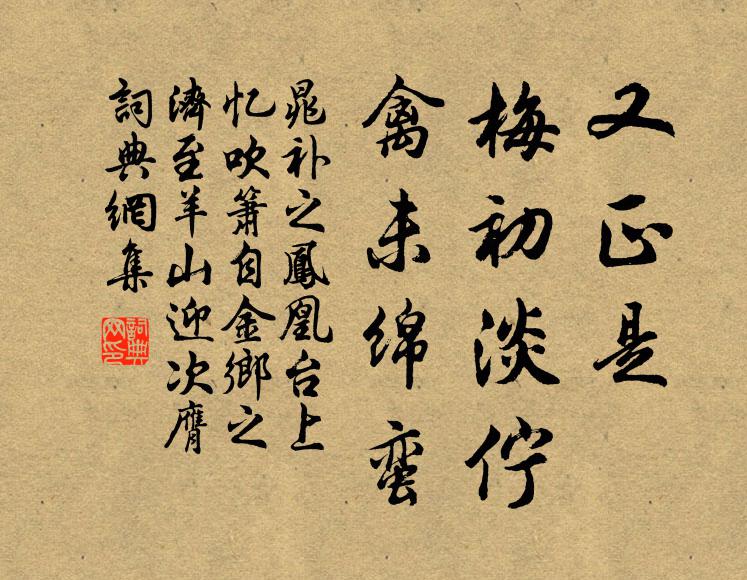 又正是
梅初淡佇
禽未绵蛮
晁补之鳳凰台上
忆吹箫自金鄉之
濟至羊山迎次膺
詞典網集
詞典
网印